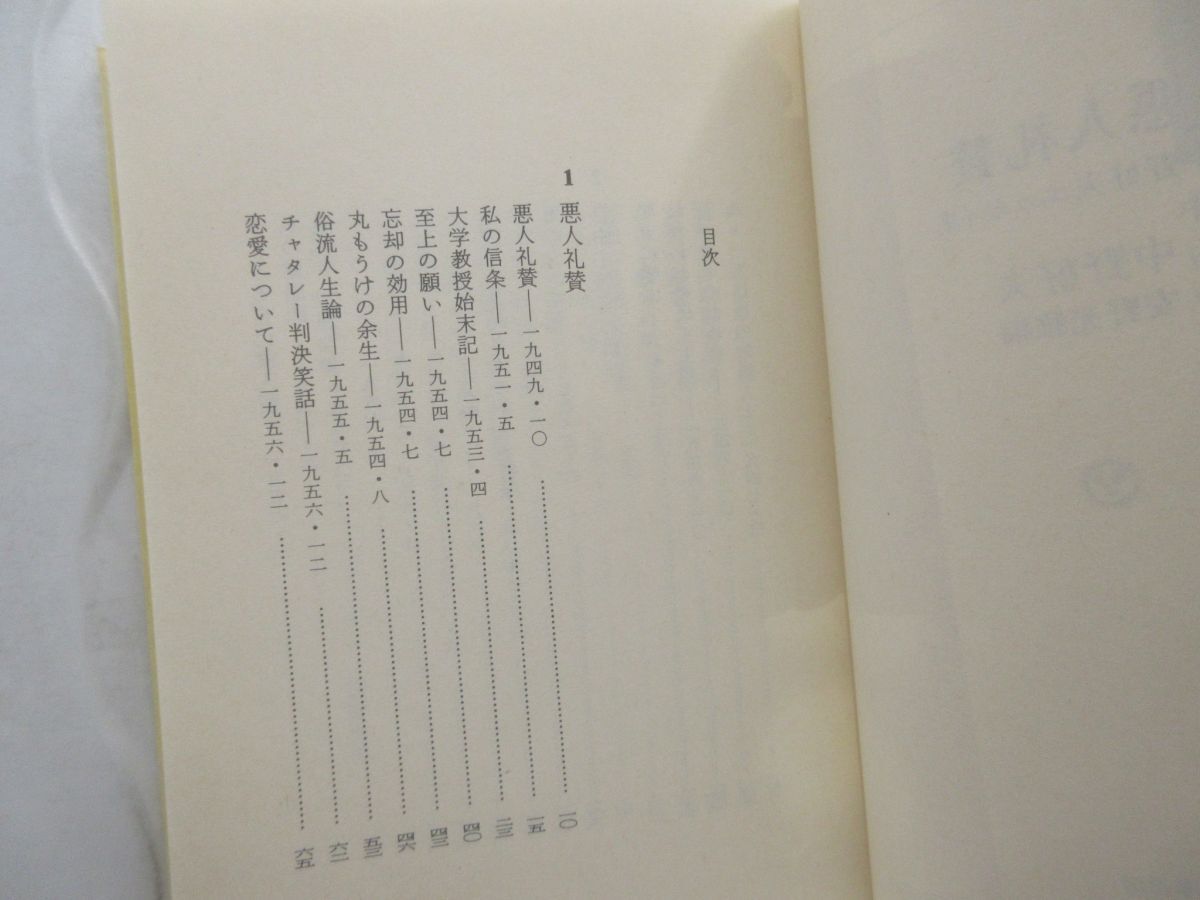 目次
1 悪人礼賛
悪人礼賛――一九四九・一〇……一〇
私の信条――一九五一・五……一五
大学教授始末記――一九五三・四……二三
至上の願い――一九五四・七……四〇
忘却の効用――一九五四・七……四三
丸もうけの余生――一九五四・八……四六
俗流人生論――一九五五・五……五三
チャタレー判決笑話――一九五六・一二……六二
恋愛について――一九五六・一二……六五